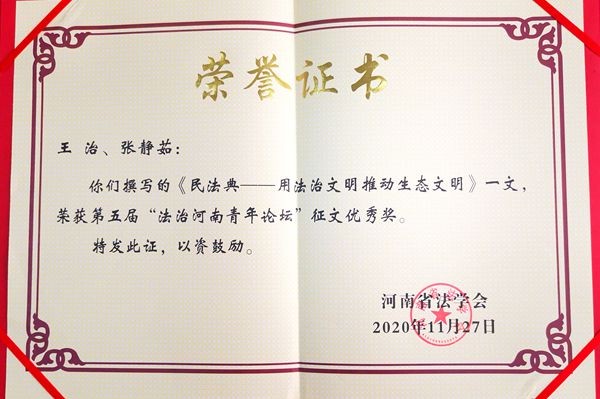 荣誉证书
王 治、张静茹：
你们撰写的《民法典——用法治文明推动生态文明》一文，
荣获第五届“法治河南青年论坛”征文优秀奖。
特发此证，以资鼓励。
河南省法学会
2020年11月27日